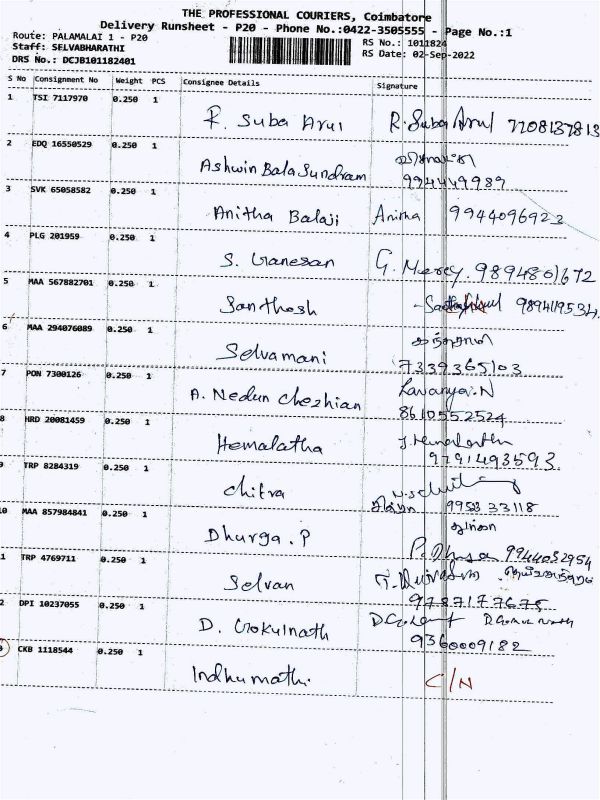 THE PROFESSIONAL COURIERS, Coimbatore
Delivery Runsheet - P20 - Phone No.:0422-3505555 - Page No.:1
Route: PALAMALAI 1 - P20
Staff: SELVABHARATHI
DRS No.: DCJB101182401
RS No.: 1011824
RS Date: 02-Sep-2022
S No Consignment No Weight PCS Consignee Details Signature
1 TSI 7117970 0.250 1 R. Suba Arul R. Suba Arul 7708137813
2 EDQ 16550529 0.250 1 Ashwin Bala Sundram
9944449989
3 SVK 65058582 0.250 1 Anitha Balaji Anitha 9944096923
4 PLG 201959 0.250 1 S. Ganesan G. Mercy. 9894801672
5 MAA 567882701 0.250 1 Santhosh 9894119534
6 MAA 294076089 0.250 1 Selvamani
7339365103
7 PON 7300126 0.250 1 A. Nedun Chezhian Lavanya.N
8610552524
8 HRD 20081459 0.250 1 Hemalatha J Hemalatha
9791493593
9 TRP 8284319 0.250 1 Chitra
9952 33118
10 MAA 857984841 0.250 1 Dhurga. P
9944032954
1 TRP 4769711 0.250 1 Selvan
9787177675
2 DPI 10237055 0.250 1 D. Gokulnath
9360009182
CKB 1118544 0.250 1 Indhumathi. C/N